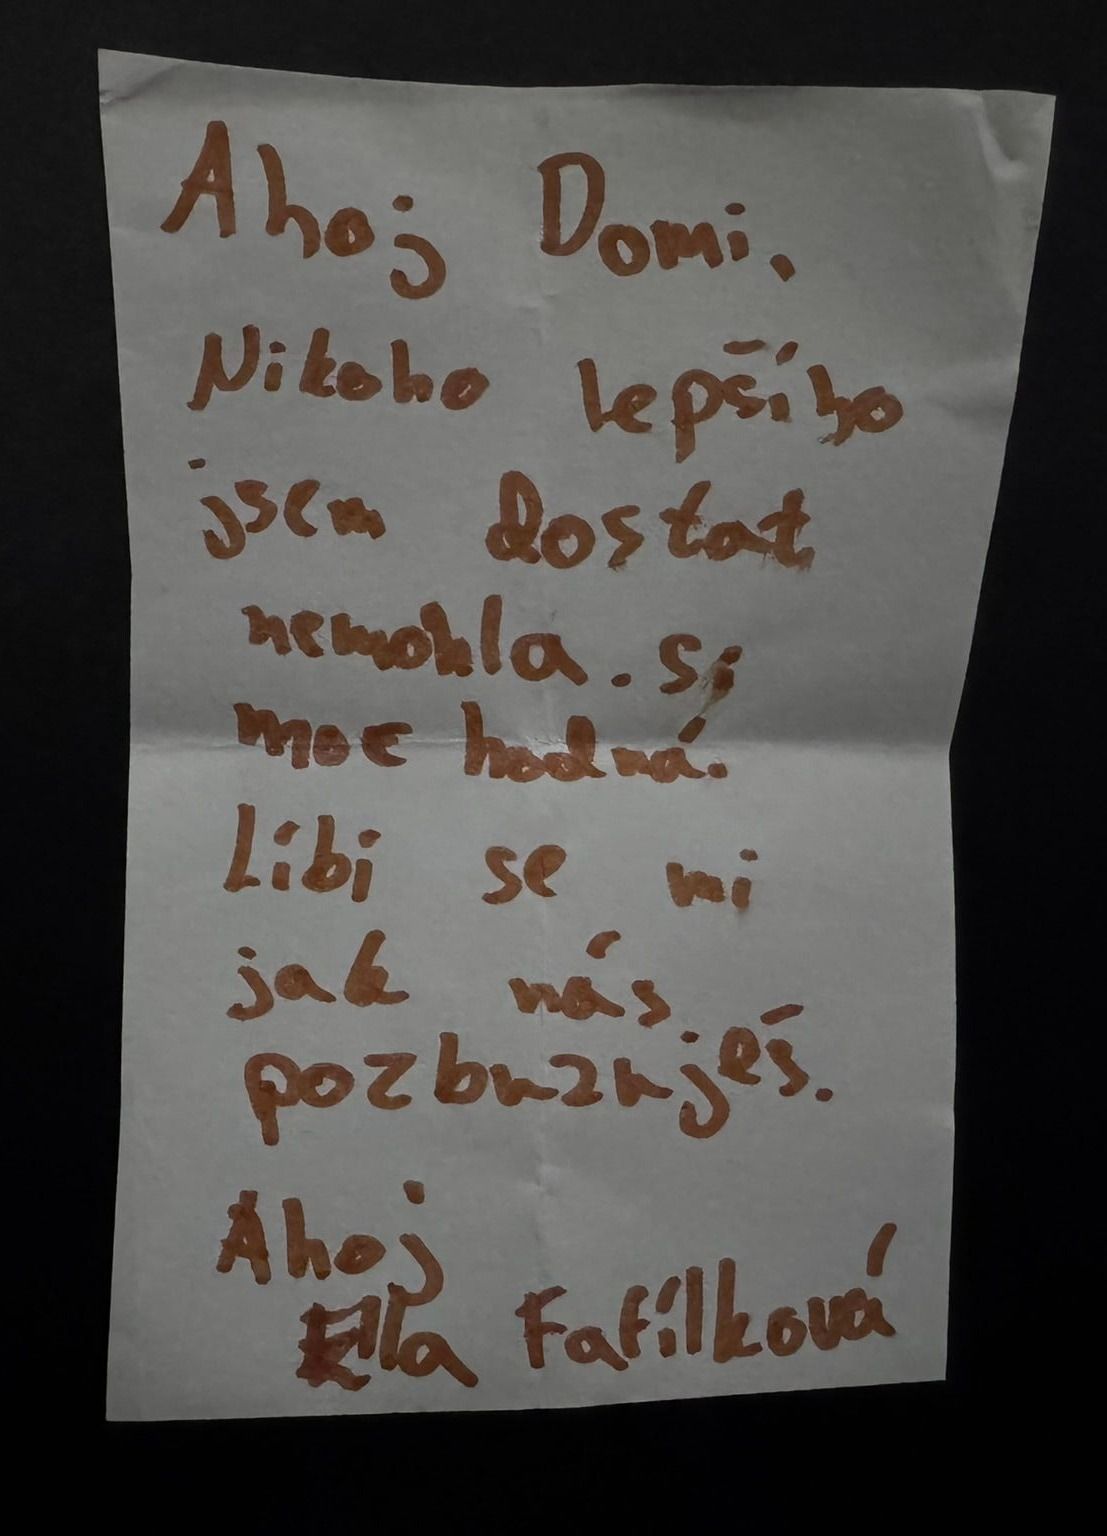 Ahoj Domi,
Nikoho lepšího
jsem dostat
nemohla. Si
moc hodná.
Líbi se mi
jak nás
pozbuzuješ.
Ahoj
Ella Fafílková